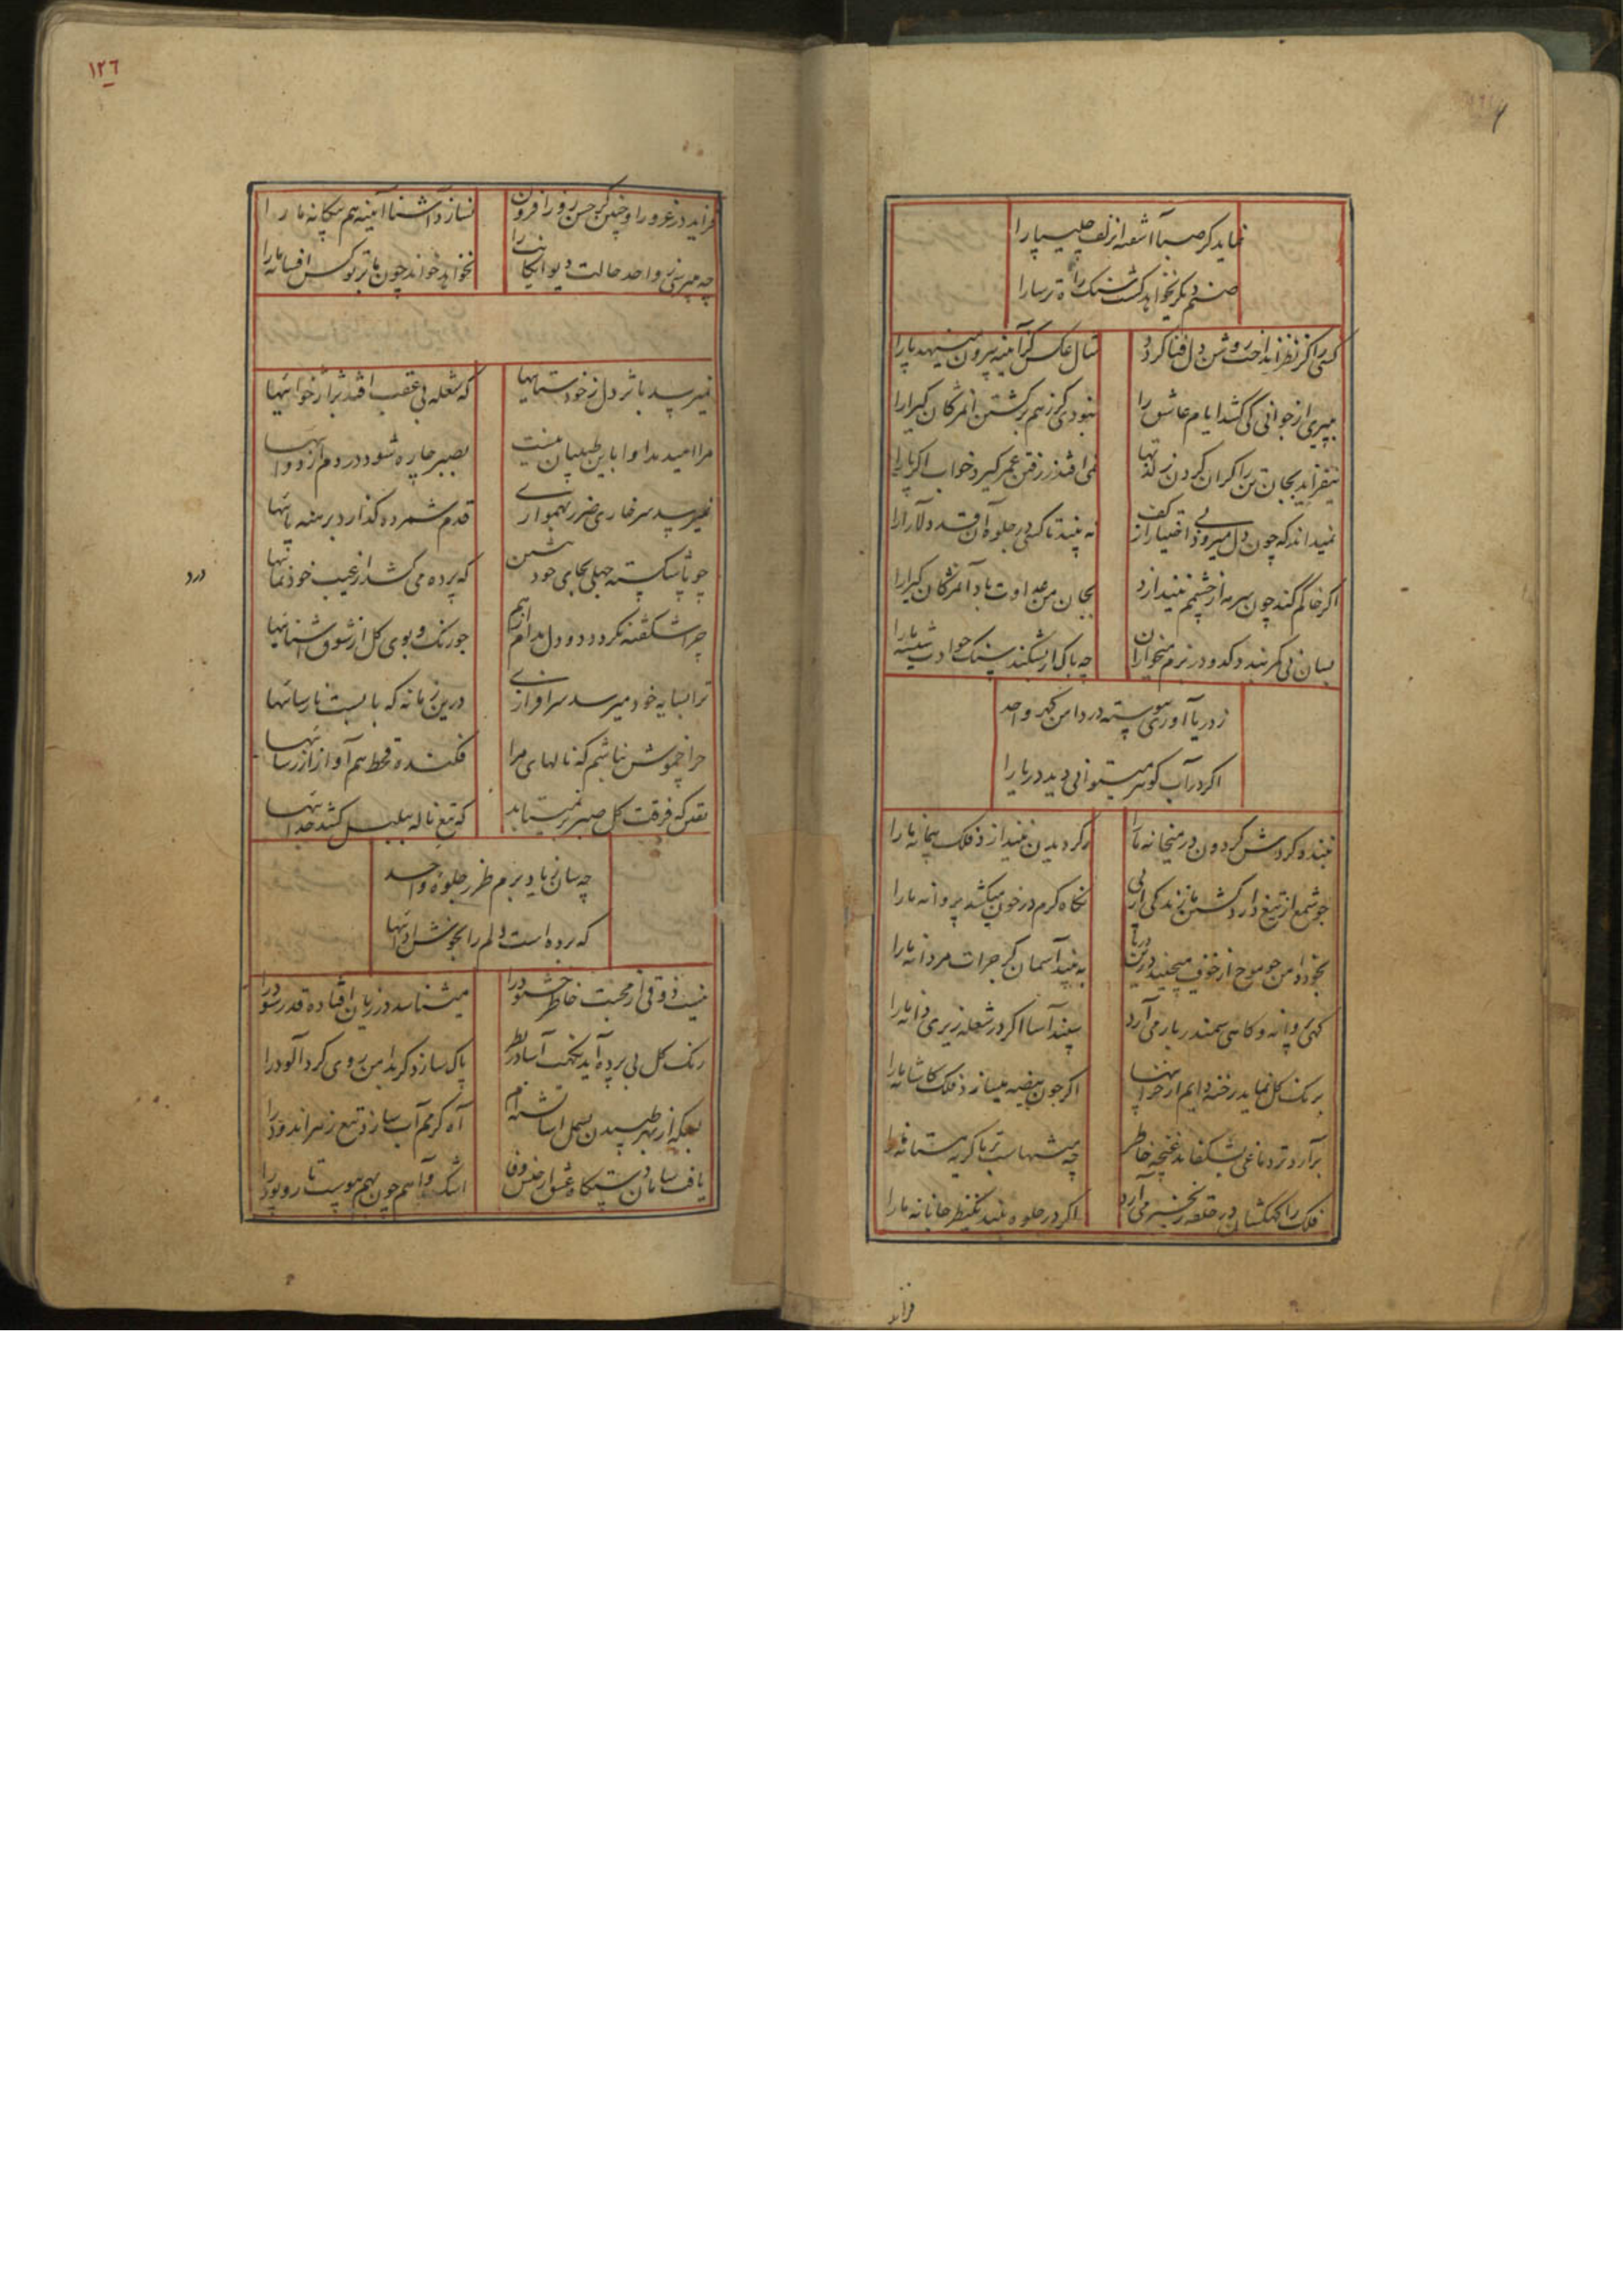 نماید کر صبا آشفته از زلف چلیپا را
صنم دیکر نخواهد کشت سنک راه ترسا را
کسی را کز نظر انداخت روشن دل فنا کردد
مثال عکس کز آئینه بیرون مینهد پا را
به پیری از جوانی کی کشد ایام عاشق را
نبودی کر ز هم برکشتن آن مژکان کیرا را
نیفزاید بجان تن را کران کردن ز لذتها
نمی افتد ز رفتن عمر کیرد خواب اکر پا را
نمیداند که چون دل میرود بی اختیار از کف
نه بیند تا کسی در جلوه آن قد دلارا را
اکر خاکم کند چون سرمه از چشمم نیندازد
بجان من عداوت باد آن مژکان کیرا را
بسان نی کمر بندد کدو در بزم میخواران
چه باک ار بشکند سنک حوادث شیشه ما را
ز دریا آوری پیوسته در دامن کهر واحد
اکر در آب کوهر میتوانی دید دریا را
نبندد کردش کردون در میخانه ما را
ز کردیدن نیندازد فلک پیمانه ما را
چو شمع از تیغ دارد کشتن ما زندکی از پی
نکاه کرم در خون میکشد پروانه ما را
بخود دامن چو موج از خوف میچیند درین دریا
به بیند آسمان کر جرات مردانه ما را
کهی پروانه و کاهی سمندر بار می آرد
سپند آسا اکر در شعله ریزی دانه ما را
برنک کل نماید رخنه دایم از خرابیها
اکر چون بیضه میسازد فلک کاشانه ما را
برآرد تر دماغی بشکفاند غنچه خاطر
چه مشربهاست با کریه مستانه ما را
فلک را کهکشان در حلقه زنجیر می آرد
اکر در جلوه بیند یکنظر جانانه ما را
فزاید
١٢٦
فزاید در غرور او چنین کر حسن روز افزون
نسازد آشنا آیینه هم بیکانه ما را
چه میپرسی ز واحد حالت دیوانکیها را
نخواهد خواند چون با تو کس افسانه ما را
نمیرسد باثر دل ز خودستاییها
که شعله بی عقب افتد
مرا امید مداوا باین طبیبان نیست
بصبر چاره شود دردم از دواییها
نمیرسد سر خاری ضرر بهمواری
قدم شمرده کذارد برهنه پاییها
چو پا شکسته جهلی بجای خود بنشین
که پرده می کشد از عیب خودنماییها
درد
چرا شکفته نکردد دو دل مدام از هم
چو رنک و بوی کل از شوق آشناییها
ترا بسایه خود میرسد سرافرازی
درین زمانه که بالیست نارساییها
چرا خموش نباشم که نالهای مرا
فکنده قحط هم آواز از رساییها
که فرقت کل صبر بر نمیتابد
که تیغ ناله بلبل کشد جداییها
چه سان بیاد برم طرز جلوه واحد
که برده است دلم را بخوش اداییها
نیست ذوقی از محبت خاطر خشنود را
میشناسد در زیان افتاده قدر سود را
رنک کل بی پرده آید نکهت آسا در نظر
پاک سازد کر بدامن روی کرد آلود را
بسکه از بهر طپیدن بسمل آسا تشنه ام
آه کرمم آب سازد تیغ زهر اندود را
یافت سامان دستکاه عشق از وفا
اشک و آهم چون بهم پیوست تار و پود را